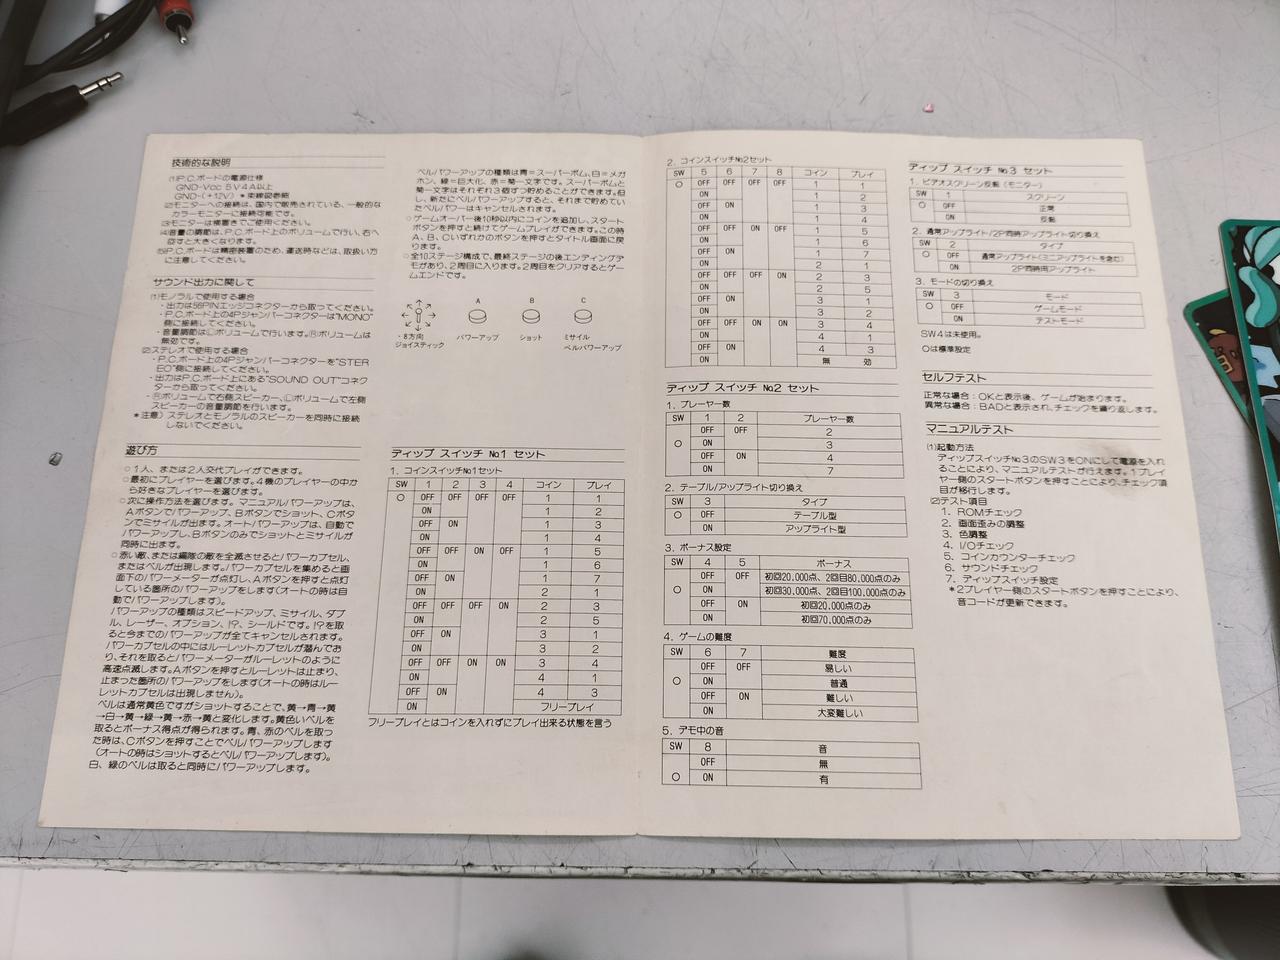 技術的な説明
(1)P.C.ボードの電源仕様
GND-Vcc 5V4A以上
GND-(+12V) *束線図参照
(2)モニターへの接続は、国内で販売されている、一般的な
カラーモニターに接続可能です。
(3)モニターは横置きでご使用ください。
(4)音量の調節は、P.C.ボード上のボリュームで行い、右へ
回すと大きくなります。
(5)P.C.ボードは精密装置のため、運送時などは、取扱い方
に注意してください。
サウンド出力に関して
(1)モノラルで使用する場合
・出力は56PINエッジコネクターから取ってください。
・P.C.ボード上の4Pジャンパーコネクターは"MONO"
側に接続してください。
・音量調節はⓁボリュームで行います。Ⓡボリュームは
無効です。
(2)ステレオで使用する場合
・P.C.ボード上の4Pジャンパーコネクターを"STER
EO"側に接続してください。
・出力はP.C.ボード上にある"SOUND OUT"コネク
ターから取ってください。
・Ⓡボリュームで右側スピーカー、Ⓛボリュームで左側
スピーカーの音量調節を行います。
*注意) ステレオとモノラルのスピーカーを同時に接続
しないでください。
遊び方
○1人、または2人交代プレイができます。
○最初にプレーヤーを選びます。4機のプレーヤーの中か
ら好きなプレーヤーを選びます。
○次に操作方法を選びます。マニュアルパワーアップは、
Aボタンでパワーアップ、Bボタンでショット、Cボタ
ンでミサイルが出ます。オートパワーアップは、自動で
パワーアップし、Bボタンのみでショットとミサイルが
同時に出ます。
○赤い敵、または編隊の敵を全滅させるとパワーカプセル、
またはベルが出現します。パワーカプセルを集めると画
面下のパワーメーターが点灯し、Aボタンを押すと点灯
している箇所のパワーアップをします(オートの時は自
動でパワーアップします)。
パワーアップの種類はスピードアップ、ミサイル、ダブ
ル、レーザー、オプション、!?、シールドです。!?を取
ると今までのパワーアップが全てキャンセルされます。
パワーカプセルの中にはルーレットカプセルが潜んでお
り、それを取るとパワーメーターがルーレットのように
高速点滅します。Aボタンを押すとルーレットは止まり、
止まった箇所のパワーアップをします(オートの時はルー
レットカプセルは出現しません)。
ベルは通常黄色ですがショットすることで、黄→青→黄
→白→黄→緑→黄→赤→黄と変化します。黄色いベルを
取るとボーナス得点が得られます。青、赤のベルを取っ
た時は、Cボタンを押すことでベルパワーアップします
(オートの時はショットするとベルパワーアップします)。
白、緑のベルは取ると同時にパワーアップします。
ベルパワーアップの種類は青=スーパーボム、白=メガ
ホン、緑=巨大化、赤=菊一文字です。スーパーボムと
菊一文字はそれぞれ3個ずつ貯めることができます。但
し、新たにベルパワーアップすると、それまで貯めてい
たベルパワーはキャンセルされます。
○ゲームオーバー後10秒以内にコインを追加し、スタート
ボタンを押すと続けてゲームプレイができます。この時
A、B、Cいずれかのボタンを押すとタイトル画面に戻
ります。
○全10ステージ構成で、最終ステージの後エンディングデ
モがあり、2周目に入ります。2周目をクリアするとゲー
ムエンドです。
A B C
・8方向
ジョイスティック パワーアップ ショット ミサイル
ベルパワーアップ
ディップ スイッチ No.1 セット
1. コインスイッチNo.1セット
SW 1 2 3 4 コイン プレイ
○ OFF OFF OFF OFF 1 1
ON 1 2
OFF ON 1 3
ON 1 4
OFF OFF ON OFF 1 5
ON 1 6
OFF ON 1 7
ON 2 1
OFF OFF OFF ON 2 3
ON 2 5
OFF ON 3 1
ON 3 2
OFF OFF ON ON 3 4
ON 4 1
OFF ON 4 3
ON フリープレイ
フリープレイとはコインを入れずにプレイ出来る状態を言う
2. コインスイッチNo.2セット
SW 5 6 7 8 コイン プレイ
○ OFF OFF OFF OFF 1 1
ON 1 2
OFF ON 1 3
ON 1 4
OFF OFF ON OFF 1 5
ON 1 6
OFF ON 1 7
ON 2 1
OFF OFF OFF ON 2 3
ON 2 5
OFF ON 3 1
ON 3 2
OFF OFF ON ON 3 4
ON 4 1
OFF ON 4 3
ON 無 効
ディップ スイッチ No.2 セット
1. プレーヤー数
SW 1 2 プレーヤー数
OFF OFF 2
○ ON 3
OFF ON 4
ON 7
2. テーブル/アップライト切り換え
SW 3 タイプ
○ OFF テーブル型
ON アップライト型
3. ボーナス設定
SW 4 5 ボーナス
OFF OFF 初回20.000点、2回目80.000点のみ
○ ON 初回30.000点、2回目100.000点のみ
OFF ON 初回20.000点のみ
ON 初回70.000点のみ
4. ゲームの難度
SW 6 7 難度
OFF OFF 易しい
○ ON 普通
OFF ON 難しい
ON 大変難しい
5. デモ中の音
SW 8 音
OFF 無
○ ON 有
ディップ スイッチ No.3 セット
1. ビデオスクリーン反転(モニター)
SW 1 スクリーン
○ OFF 正常
ON 反転
2. 通常アップライト/2P同時アップライト切り換え
SW 2 タイプ
○ OFF 通常アップライト(ミニアップライトを含む)
ON 2P同時用アップライト
3. モードの切り換え
SW 3 モード
○ OFF ゲームモード
ON テストモード
SW4は未使用。
○は標準設定
セルフテスト
正常な場合:OKと表示後、ゲームが始まります。
異常な場合:BADと表示され、チェックを繰り返します。
マニュアルテスト
(1)起動方法
ディップスイッチNo.3のSW3をONにして電源を入れ
ることにより、マニュアルテストが行えます。1プレイ
ヤー側のスタートボタンを押すことにより、チェック項
目が移行します。
(2)テスト項目
1. ROMチェック
2. 画面歪みの調整
3. 色調整
4. I/Oチェック
5. コインカウンターチェック
6. サウンドチェック
7. ディップスイッチ設定
*2プレイヤー側のスタートボタンを押すことにより、
音コードが更新できます。